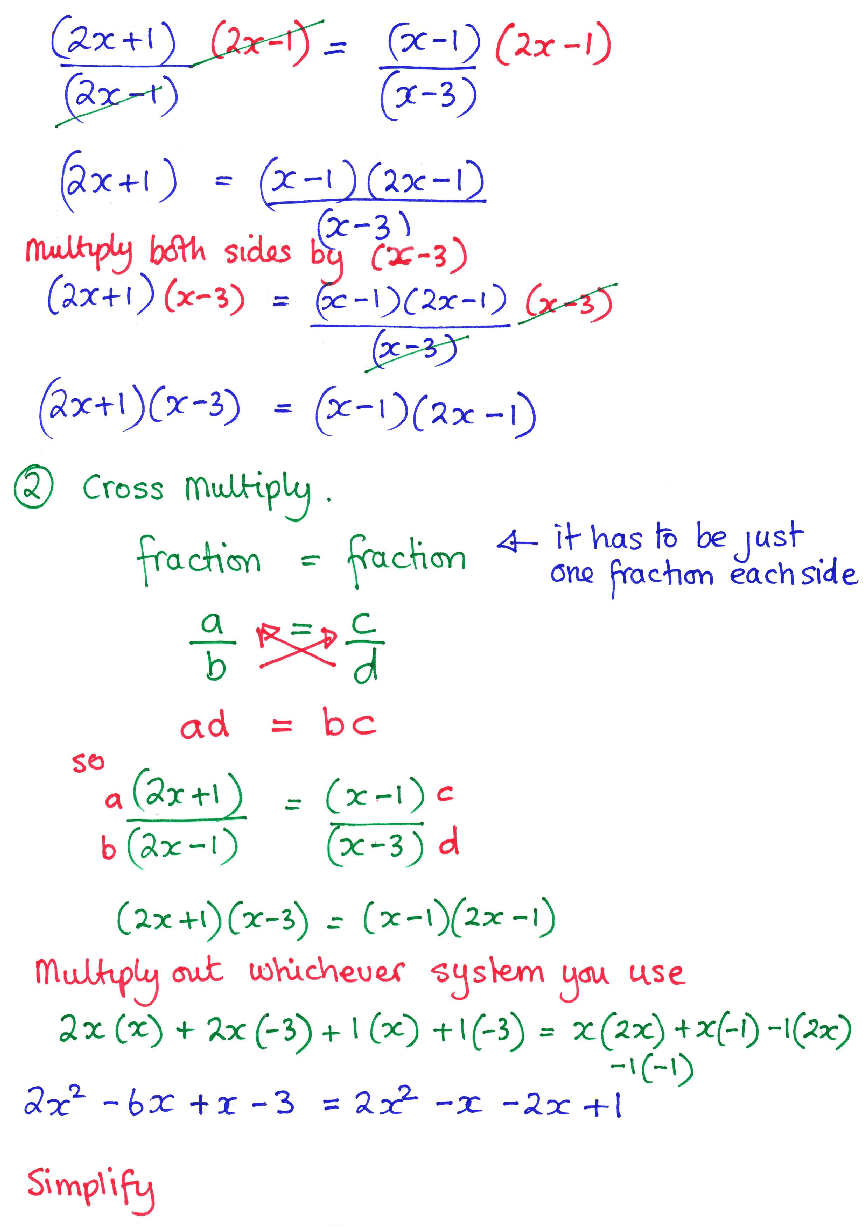 (2x+1) (2x-1) = (x-1) (2x-1)
(2x-1) (x-3)
(2x+1) = (x-1)(2x-1)
(x-3)
Multiply both sides by (x-3)
(2x+1)(x-3) = (x-1)(2x-1) (x-3)
(x-3)
(2x+1)(x-3) = (x-1)(2x-1)
② Cross Multiply.
fraction = fraction ← it has to be just
one fraction each side
a = c
b d
ad = bc
so
a (2x+1) = (x-1) c
b (2x-1) (x-3) d
(2x+1)(x-3) = (x-1)(2x-1)
Multiply out whichever system you use
2x(x) + 2x(-3) + 1(x) + 1(-3) = x(2x) + x(-1) -1(2x)
-1(-1)
2x² - 6x + x - 3 = 2x² - x - 2x + 1
Simplify